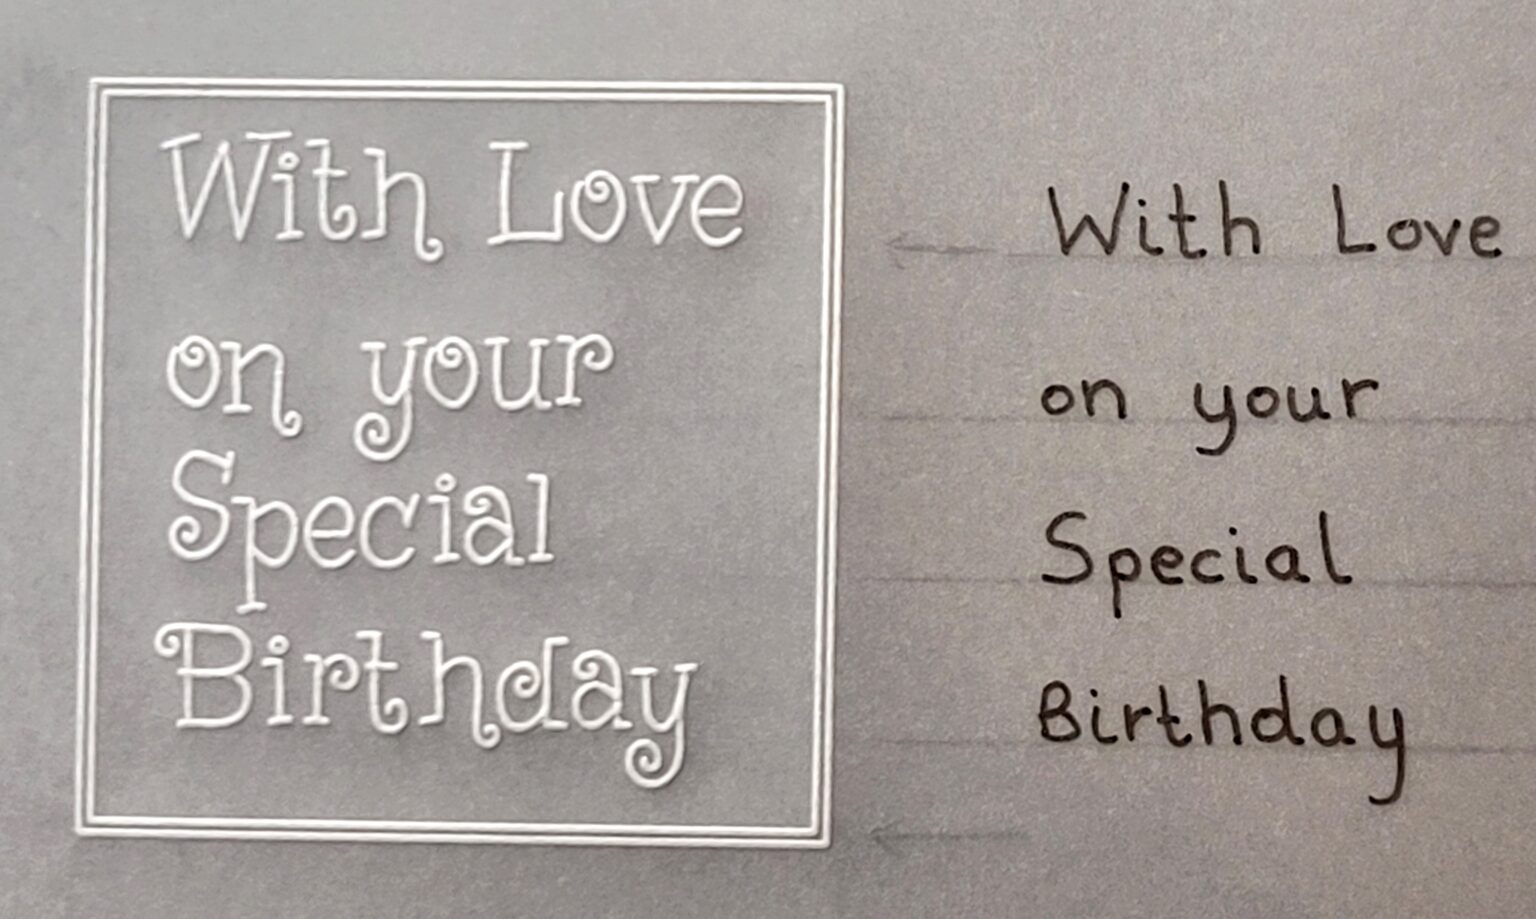 With Love
on your
Special
Birthday
With Love
on your
Special
Birthday